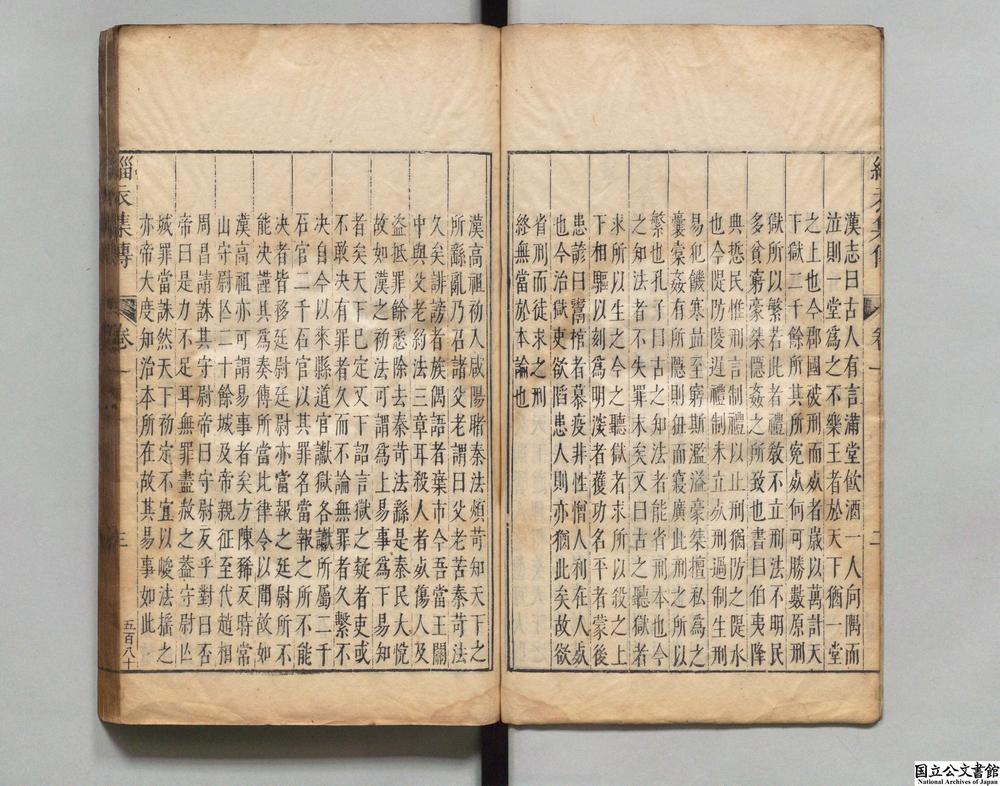 漢志曰古人有言滿堂飲酒一人向隅而
泣則一堂為之不樂王者於天下猶一堂
之上也今郡國被刑而死者歲以萬計天
下獄二千餘所其所冤死何可勝數原刑
獄所以繁若此者禮教不立刑法不明民
多貧窮豪桀隱姦之所致也書曰伯夷降
典悊民惟刑言制禮以止刑猶防之隄水
也今隄防陵遲禮制未立死刑過制生刑
易犯饑寒並至窮斯濫溢豪桀擅私為之
囊橐姦有所隱則狃而寖廣此刑之所以
繁也孔子曰古之知法者能省刑本也今
之知法者不失罪末矣又曰古之聽獄者
求所以生之今之聽獄者求所以殺之上
下相驅以刻為明深者獲功名平者蒙後
患諺曰鬻棺者慕疫非性憎人利在人死
也今治獄吏欲䧟患人則亦猶此矣故欲
省刑而徒求之刑
終無當於本論也
漢高祖初入咸陽睹秦法煩苛知天下之
所繇亂乃召諸父老謂曰父老苦秦苛法
久矣誹謗者族偶語者棄市今吾當王關
中與父老約法三章耳殺人者死傷人及
盜抵罪餘悉除去秦苛法繇是秦民大悅
故如漢之初法可謂為上易事為下易知
者矣天下已定又下詔言獄之疑者吏或
不敢決有罪者久而不論無罪者久繫不
決自今以來縣道官讞獄各讞所屬二千
石官二千石官以其罪名當報之所不能
決者皆移廷尉廷尉亦當報之廷尉所不
能決謹具為奏傳所當比律令以聞故如
漢高祖亦可謂易事者矣方陳豨反時常
山守尉亾二十餘城及帝親征至代趙相
周昌請誅其守尉帝曰守尉反乎對曰否
帝曰是力不足耳無罪盡赦之蓋守尉亾
城罪當誅然天下初定不宜以峻法搖之
亦帝大度知治本所在故其易事如此
五百八十
緇衣集傳
卷一
三
緇衣集傳
卷一
二
国立公文書館
National Archives of Japan